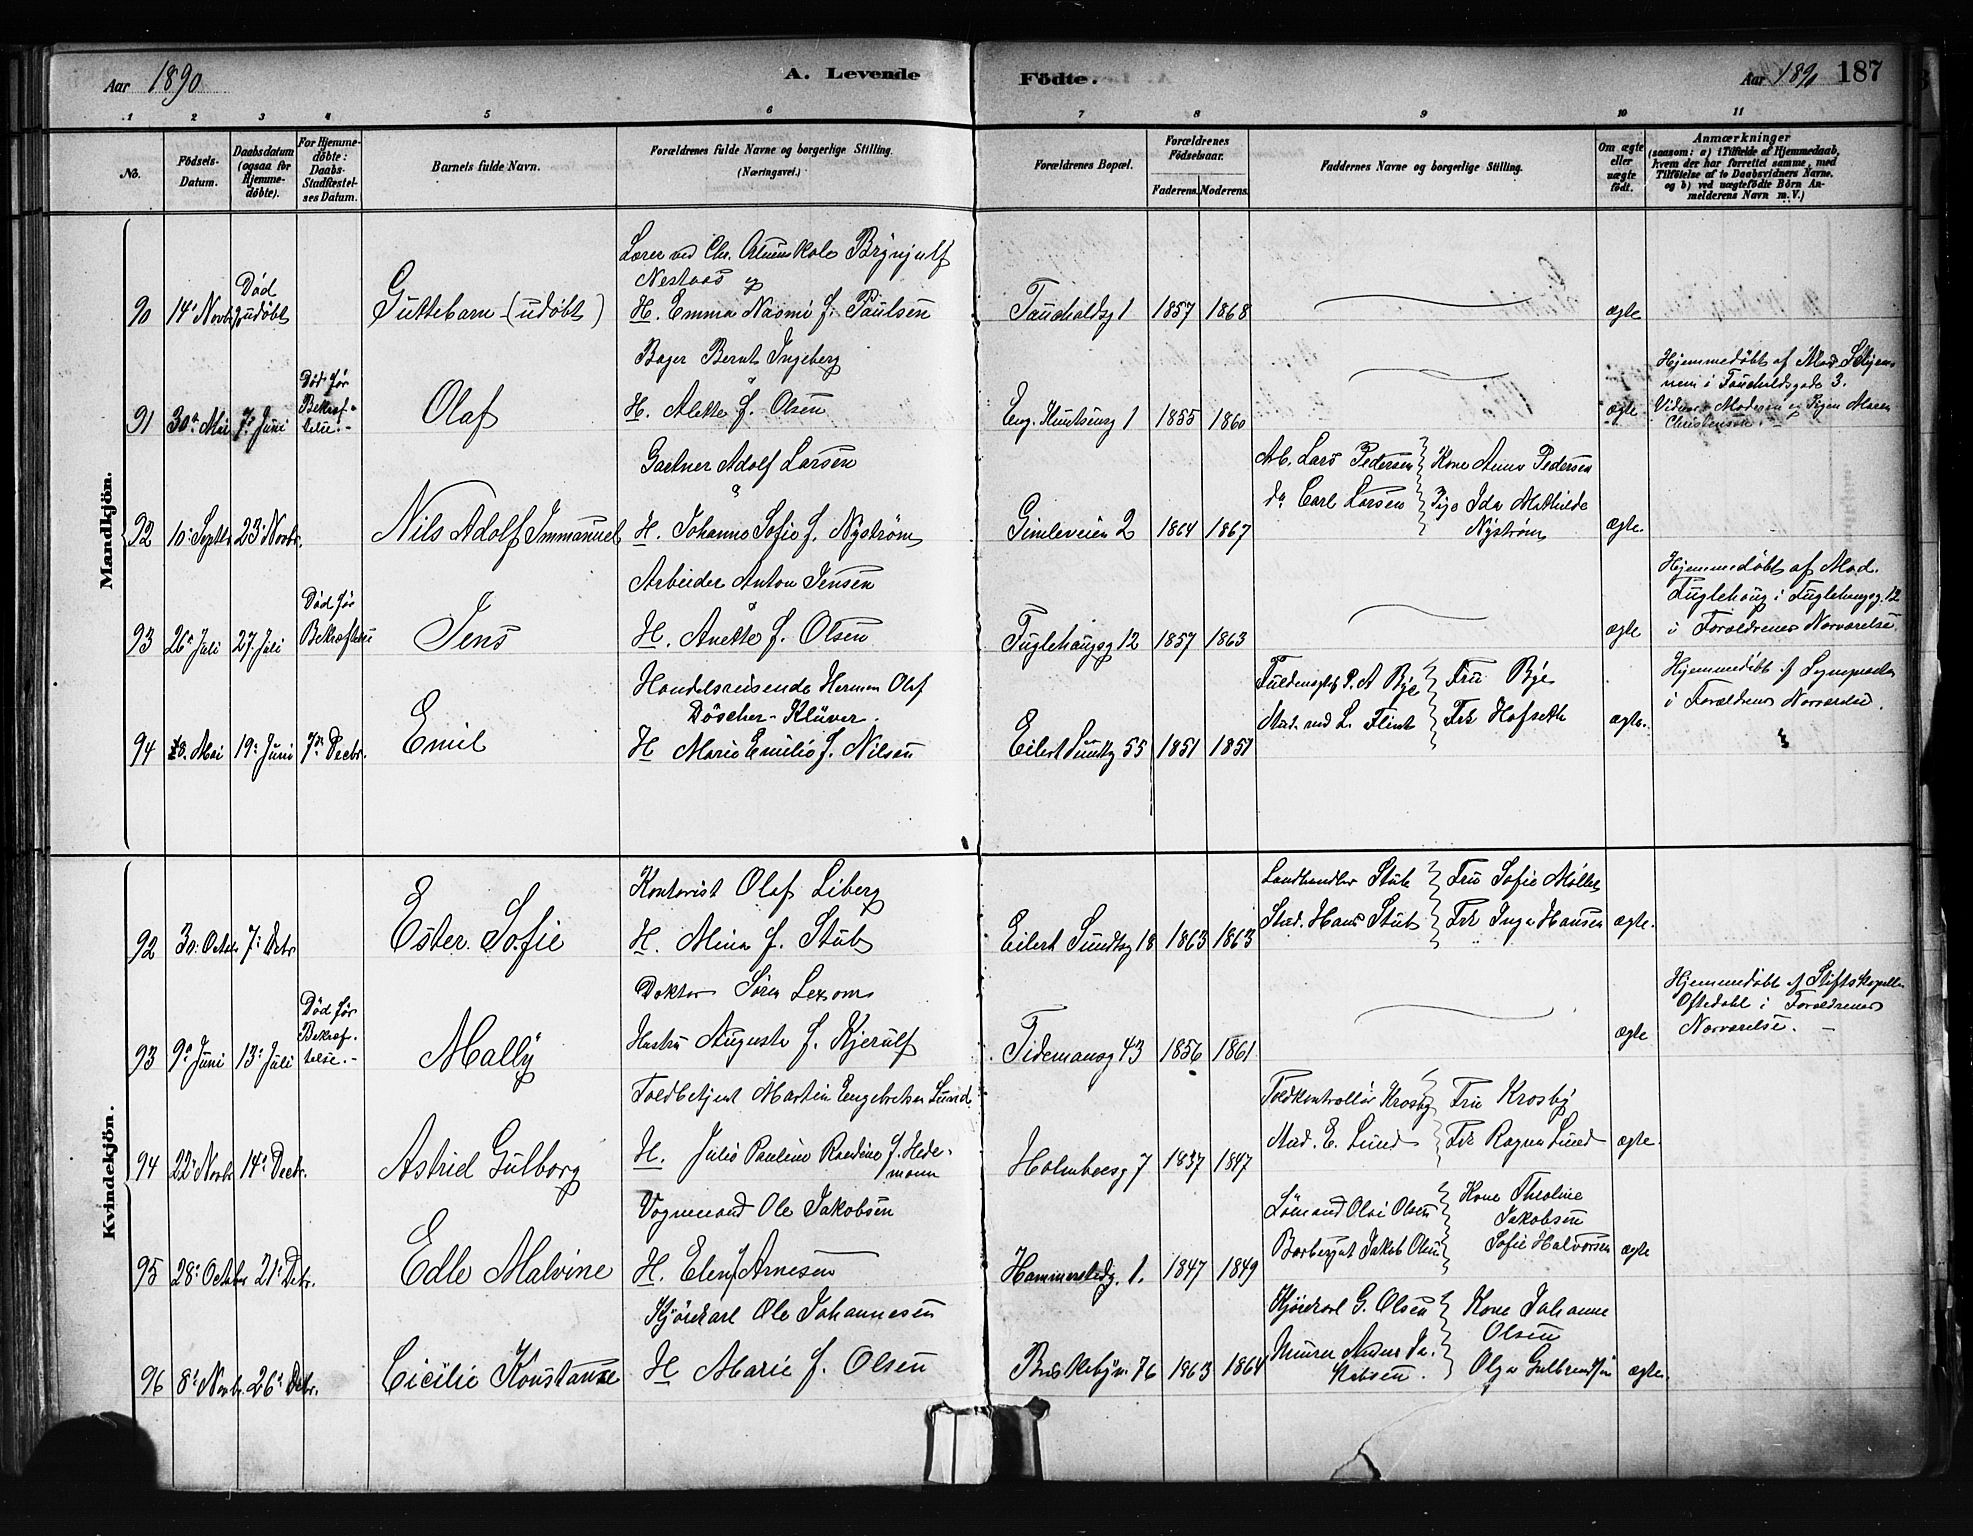 Aar 1890
A. Levende Födte.
Aar 1890 187
1 2 3 4 5 6 7 8 9 10 11
No.
Födsels-Datum.
Daabsdatum (ogsaa for Hjemme-döbte).
For Hjemme-döbte: Daabs-Stadfæstel-ses Datum.
Barnets fulde Navn.
Forældrenes fulde Navne og borgerlige Stilling. (Næringsvei.)
Forældrenes Bopæl.
Forældrenes Födselsaar.
Faderens. Moderens.
Faddernes Navne og borgerlige Stilling.
Om ægte eller uægte födt.
Anmærkninger
(saasom: a) i Tilfælde af Hjemmedaab, hvem der har forrettet samme, med Tilföielse af to Daabsvidners Navne. og b) ved uægtefödte Börn Anmelderens Navn m. V.)
Mandkjön.
Lærer ved Chr. Brynjulf
Nestaas og
90 14de Novbr Død udøbt Guttebarn (udøbt) H. Emma Naomi f. Paulsen 1 1857 1868 ægte
Bager Bernt Ingeberg
&
91 30te Mai 7de Juni Død før Bekræf-telse.- Olaf H. Alette f. Olsen Eng. 1 1855 1860 ægte
Hjemmedøbt af Mad.
nem i 3.
Vidner Moderen og Pigen Maren
Christensen.
Gartner Adolf Larsen
&
92 10. Septbr. 23. Novbr. Nils Adolf Immanuel H. Johanne Sofie f. Nyström Gimleveien 2 1864 1867 ægte
Arb. Lars Pedersen Kone Anne Pedersen
do Carl Larsen Pige Ida Mathilde
Nyström
Arbeider Anton Jensen
&
93 26de Juli 27. Juli Død før Bekræftelse Jens H. Anette f. Olsen Fuglehaugg 12 1857 1863 ægte
Hjemmedøbt af Mad.
Fuglehaug i Fuglehaugsg. 12
i Forældrenes Nærværelse.
Handelsreisende Herman Olaf
Döscher-Klüver.
94 Mai 19. Juni 7de Decbr. Emil H Marie Emilie f. Nilsen Eilert Sundtsg 55 1851 1851 ægte.
P. A Bye Fru Bye
L. Flint Frk Hofseth
Hjemmedøbt af
i Forældrenes Nærværelse.
Kvindekjön.
Kontorist Olaf Liberg
92 30. Octbr 7. Decbr Ester Sofie H. Mina f. Stub Eilert Sundtsg 18 1863 1863 ægte.
Landhandler Stub Fru Sofie Møller
Stud. Hans Stub Frk Inga Hansen
Doktor Sören
93 9de Juni 13. Juli Død før Bekræf-telse.- Mally Hustru Augusta f. Kjerulf Tidemansg 43 1856 1861 ægte
Hjemmedøbt af Stiftskapellan
Oftedahl i Forældrenes
Nærværelse. -
Toldbetjent Martin Engebretsen Lund
94 22de Novbr 14de Decbr. Astrid Gulborg H. Julie Pauline f. Hede-mann Holmboesg 7 1837 1847 ægte.
Toldkontrollør Krosby Fru Krosby
Stud. E. Lund Frk Ragna Lund
Vognmand Ole Jakobsen
95 28. Octbr 21. Decbr. Edle Malvine H. Elen f Arnesen 1. 1847 1849 ægte
Olai Olsen Kone Theoline
Jakobsen
Jakob Olsen Sofie Halvorsen
Kjørekarl Ole Johannesen
96 8. Novbr. 26. Decbr. Cicilie Konstanse H Marie f. Olsen Briskebyv. 76 1863 1864 ægte.
Kjørekarl G. Olsen Kone Johanne
Olsen
Murer Olga Gulbrandsen